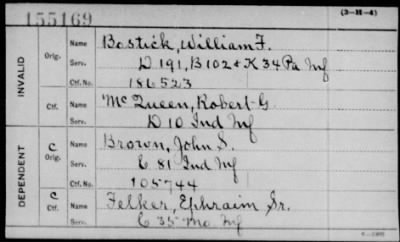 155169 (3-H-4)
INVALID Orig. Name Bostick, William F.
Serv. D 191, B 102 & K 34 Pa Inf
Ctf. No. 186523
Ctf. Name McQueen, Robert G.
Serv. D 10 Ind Inf
DEPENDENT C Orig. Name Brown, John S.
Serv. E 81 Ind Inf
Ctf. No. 105744
C Ctf. Name Felker, Ephraim Sr.
Serv. E 35 Mo Inf